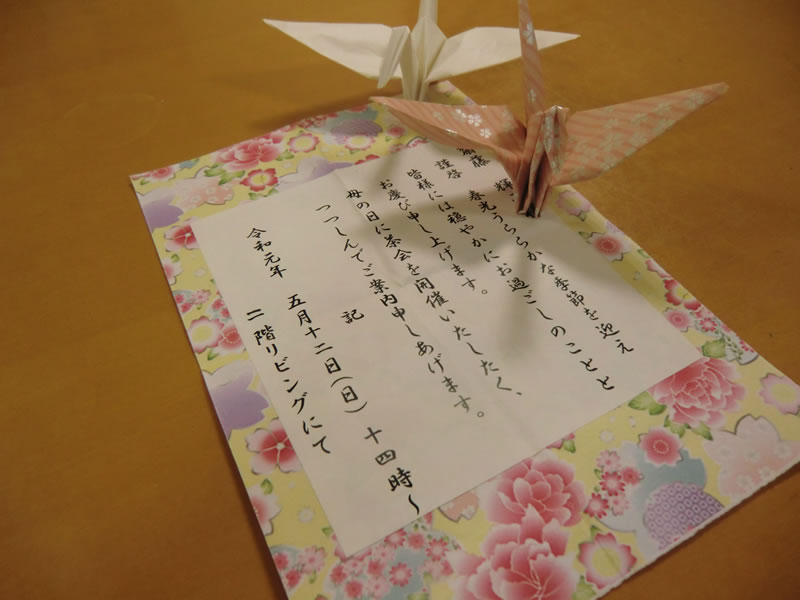 齋藤 輝
謹啓 春光うららかな季節を迎え
皆様には穏やかにお過ごしのことと
お慶び申し上げます。
母の日に茶会を開催いたしたく、
つつしんでご案内申しあげます。
記
令和元年 五月十二日(日) 十四時~
二階リビングにて